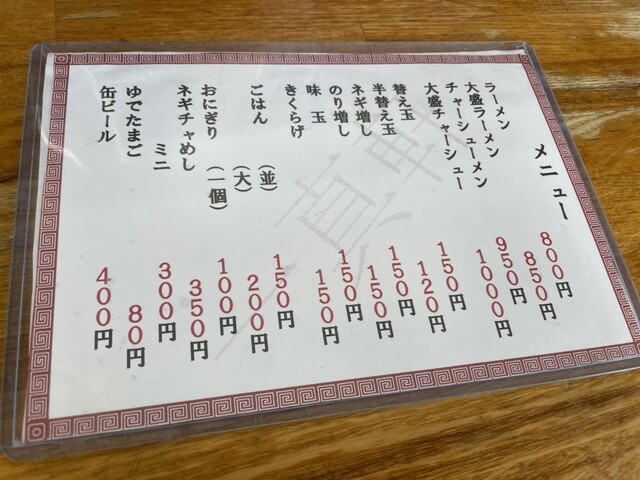 メニュー
ラーメン 800円
大盛ラーメン 850円
チャーシューメン 950円
大盛チャーシュー 1000円
替え玉 150円
半替え玉 120円
ネギ増し 150円
のり増し 150円
味 玉 150円
きくらげ 150円
ごはん (並) 150円
(大) 200円
おにぎり (一個) 100円
ネギチャめし 350円
ミニ 300円
ゆでたまご 80円
缶ビール 400円